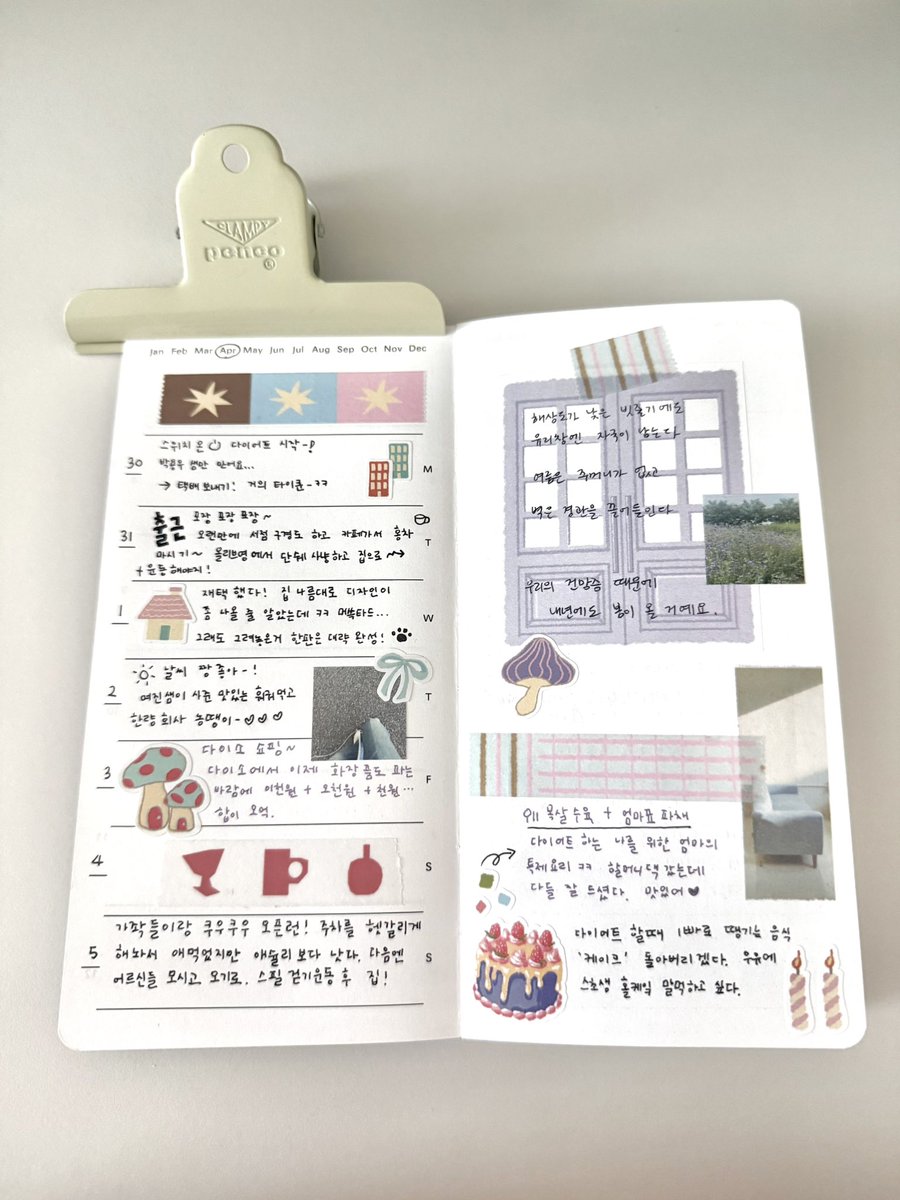 CLAMPY
penco
®
Jan Feb Mar Apr May Jun Jul Aug Sep Oct Nov Dec
30
스위치 온 다이어트 시작~!
M
→ 택배 보내기! 거의 타이쿤~ㅋㅋ
31
출근 포장 포장 포장~
오랜만에 서점 구경도 하고 카페가서 홍차
T
마시기~ 올리브영에서 단쉐 사냥하고 집으로
+ 운동해야지!
1
재택 했다! 집 나름대로 디자인이
좀 나올 줄 알았는데 ㅋㅋ 머쓱타드...
W
그래도 그려놓은거 한판은 대략 완성!
2
날씨 짱 좋아~!
T
여진쌤이 사준 맛있는 훠궈먹고
한량 회사 농땡이~♡♡♡
3
다이소 쇼핑~
다이소에서 이제 화장품도 파는
F
바람에 이천원 + 오천원 + 천원...
합이 오억.
4
S
5
가좍들이랑 쿠우쿠우 오픈런! 주차를 헷갈리게
해놔서 애먹었지만 애슐리보다 낫다. 다음엔
S
어르신들 모시고 오기로. 스필 걷기운동 후 집!
해상도가 낮은 빗줄기에도
유리창엔 자국이 남는다
여름은 주머니가 없고
벽은 정란을 끌어들인다
우리의 건망증 때문에
내년에도 봄이 올 거예요.
목살 수육 + 엄마표 파채
다이어트 하는 나를 위한 엄마의
특제요리 ㅋㅋ 할머니댁 갔는데
다들 잘 드셨다. 맛있어♥
다이어트 할때 1빠로 땡기는 음식
'케이크' 돌아버리겠다. 우유에
스초생 홀케익 말먹하고 싶다.